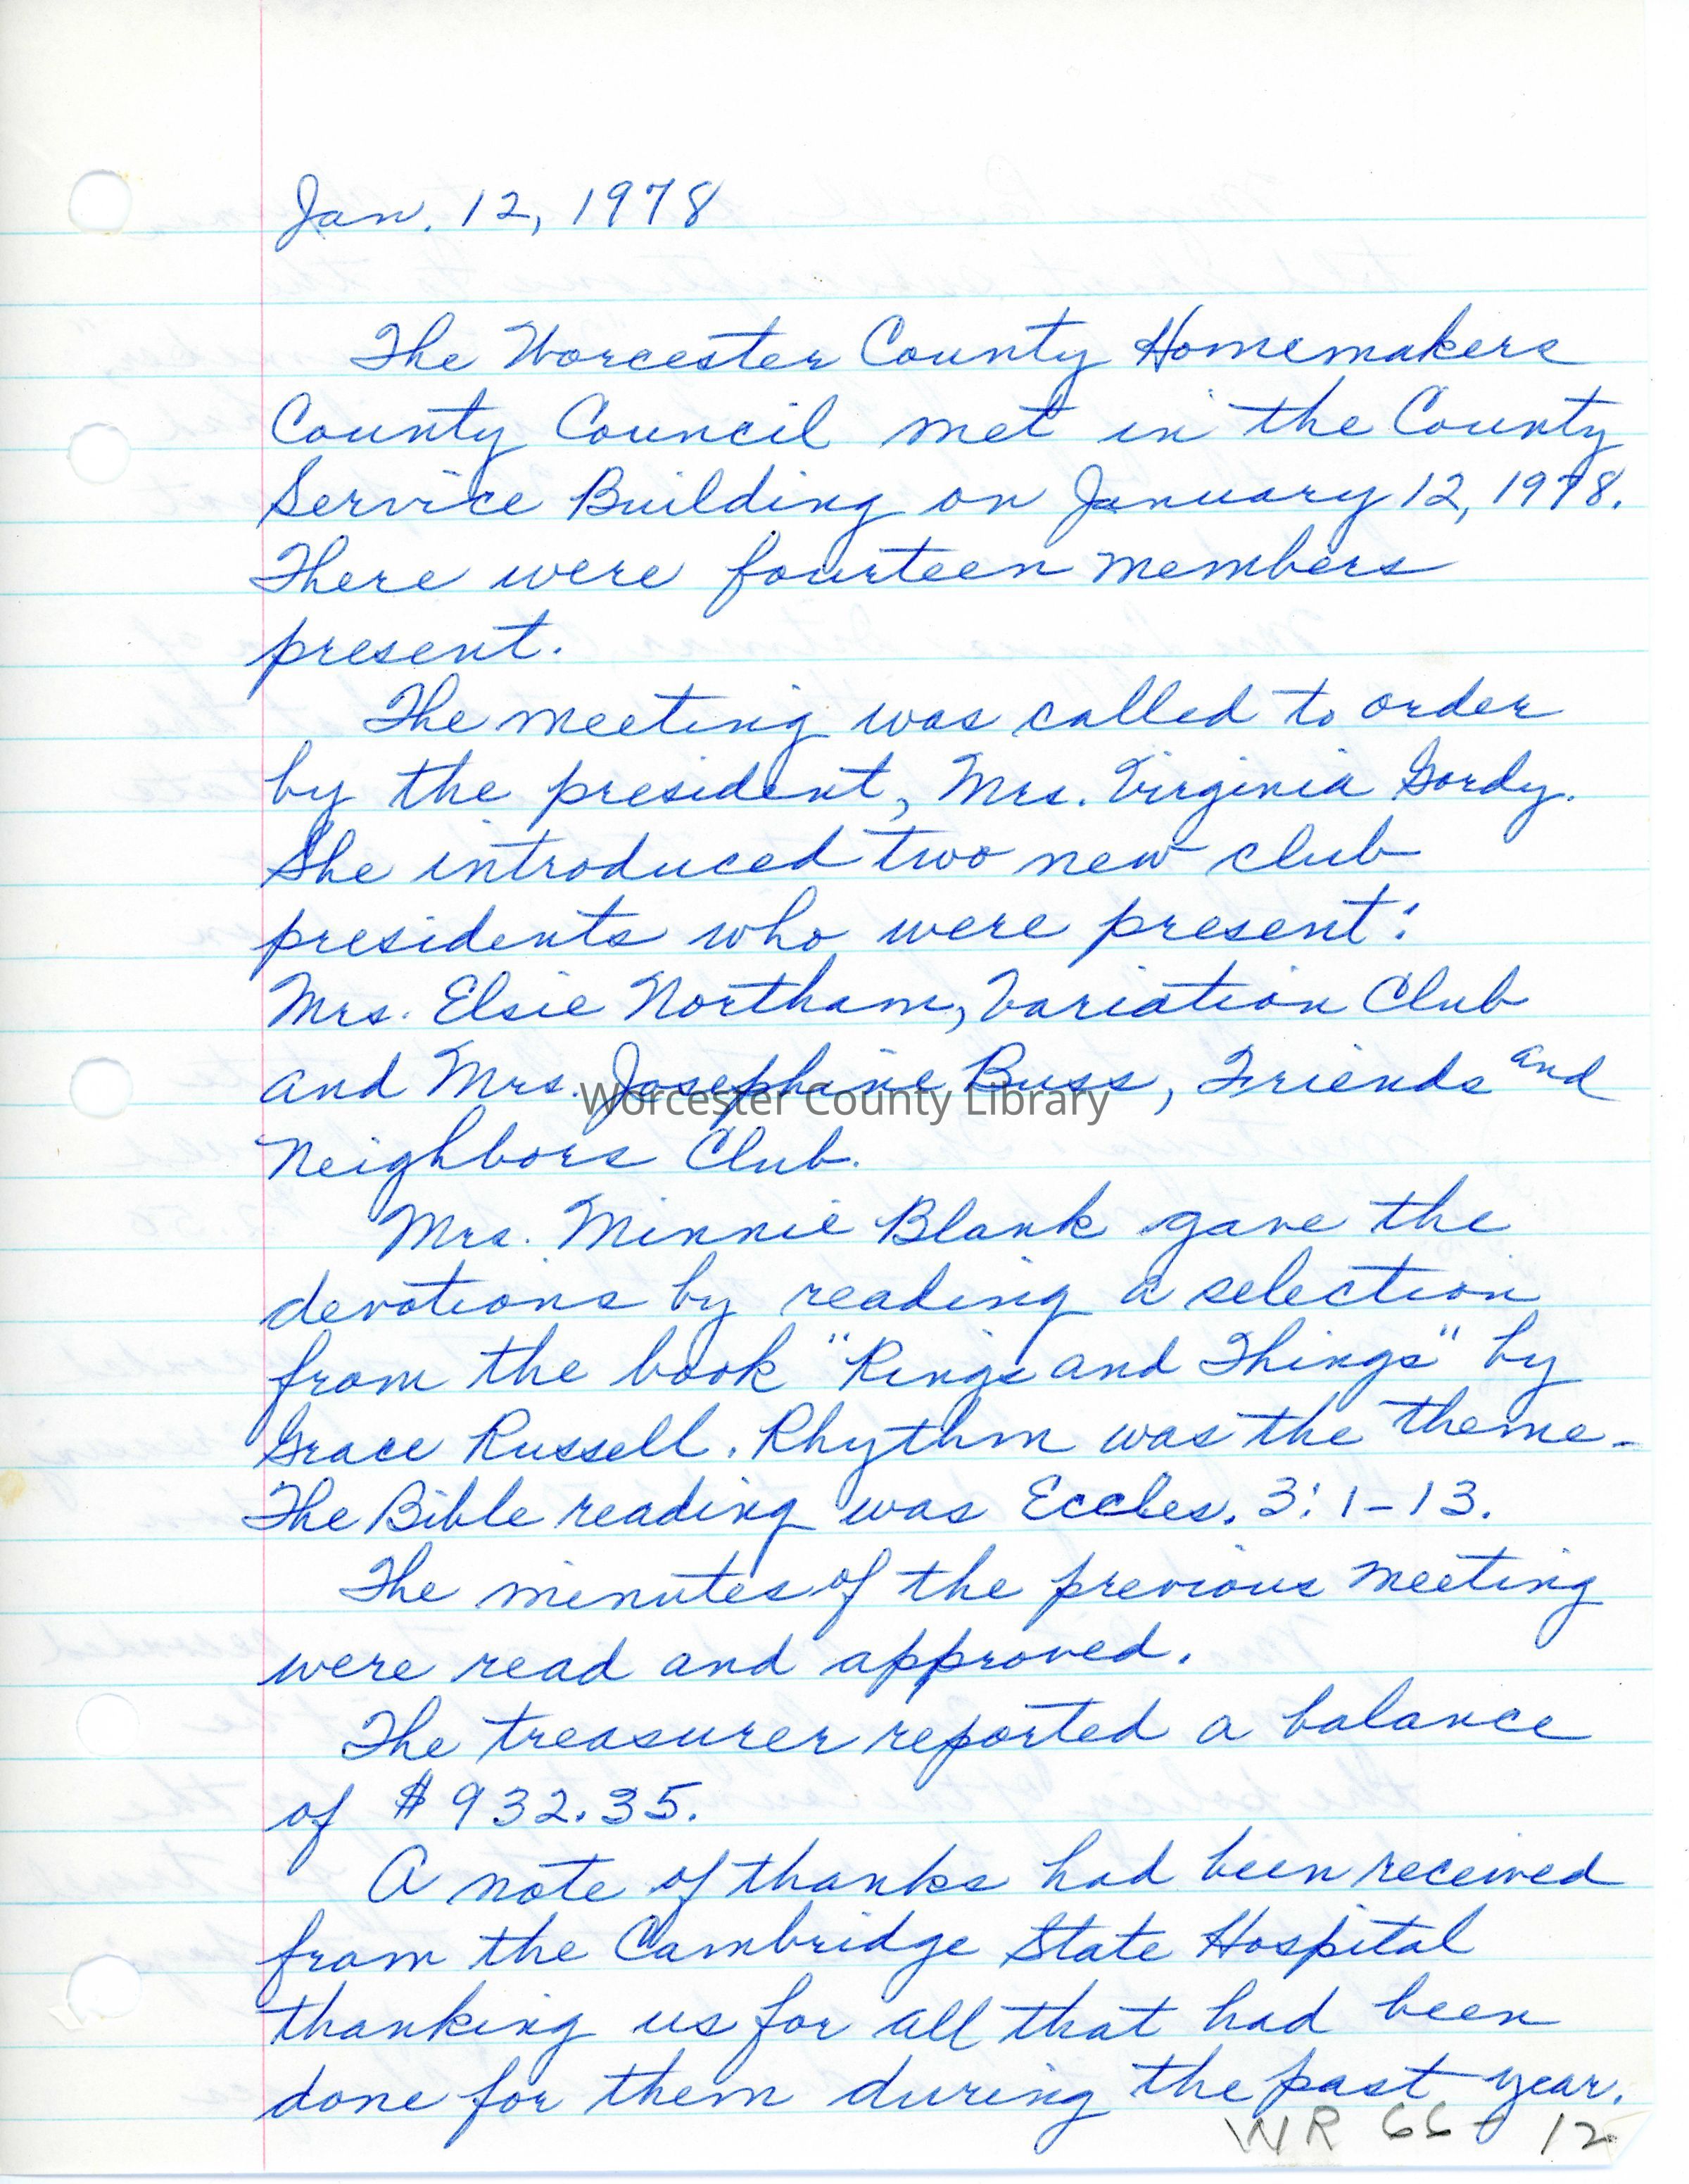 Jan. 12, 1978
The Worcester County Homemakers
County Council met in the County
Service Building on January 12, 1978.
There were fourteen members
present.
The meeting was called to order
by the president, Mrs. Virginia Gordy.
She introduced two new club
presidents who were present:
Mrs. Elsie Northam, Variation Club
and Mrs. Josephine Buss, Friends and
Neighbors Club.
Worcester County Library
Mrs. Minnie Blank gave the
devotions by reading a selection
from the book "Rings and Things" by
Grace Russell. Rhythm was the theme.
The Bible reading was Eccles. 3:1-13.
The minutes of the previous meeting
were read and approved.
The treasurer reported a balance
of $932.35.
A note of thanks had been received
from the Cambridge State Hospital
thanking us for all that had been
done for them during the past year.
WR 66-12